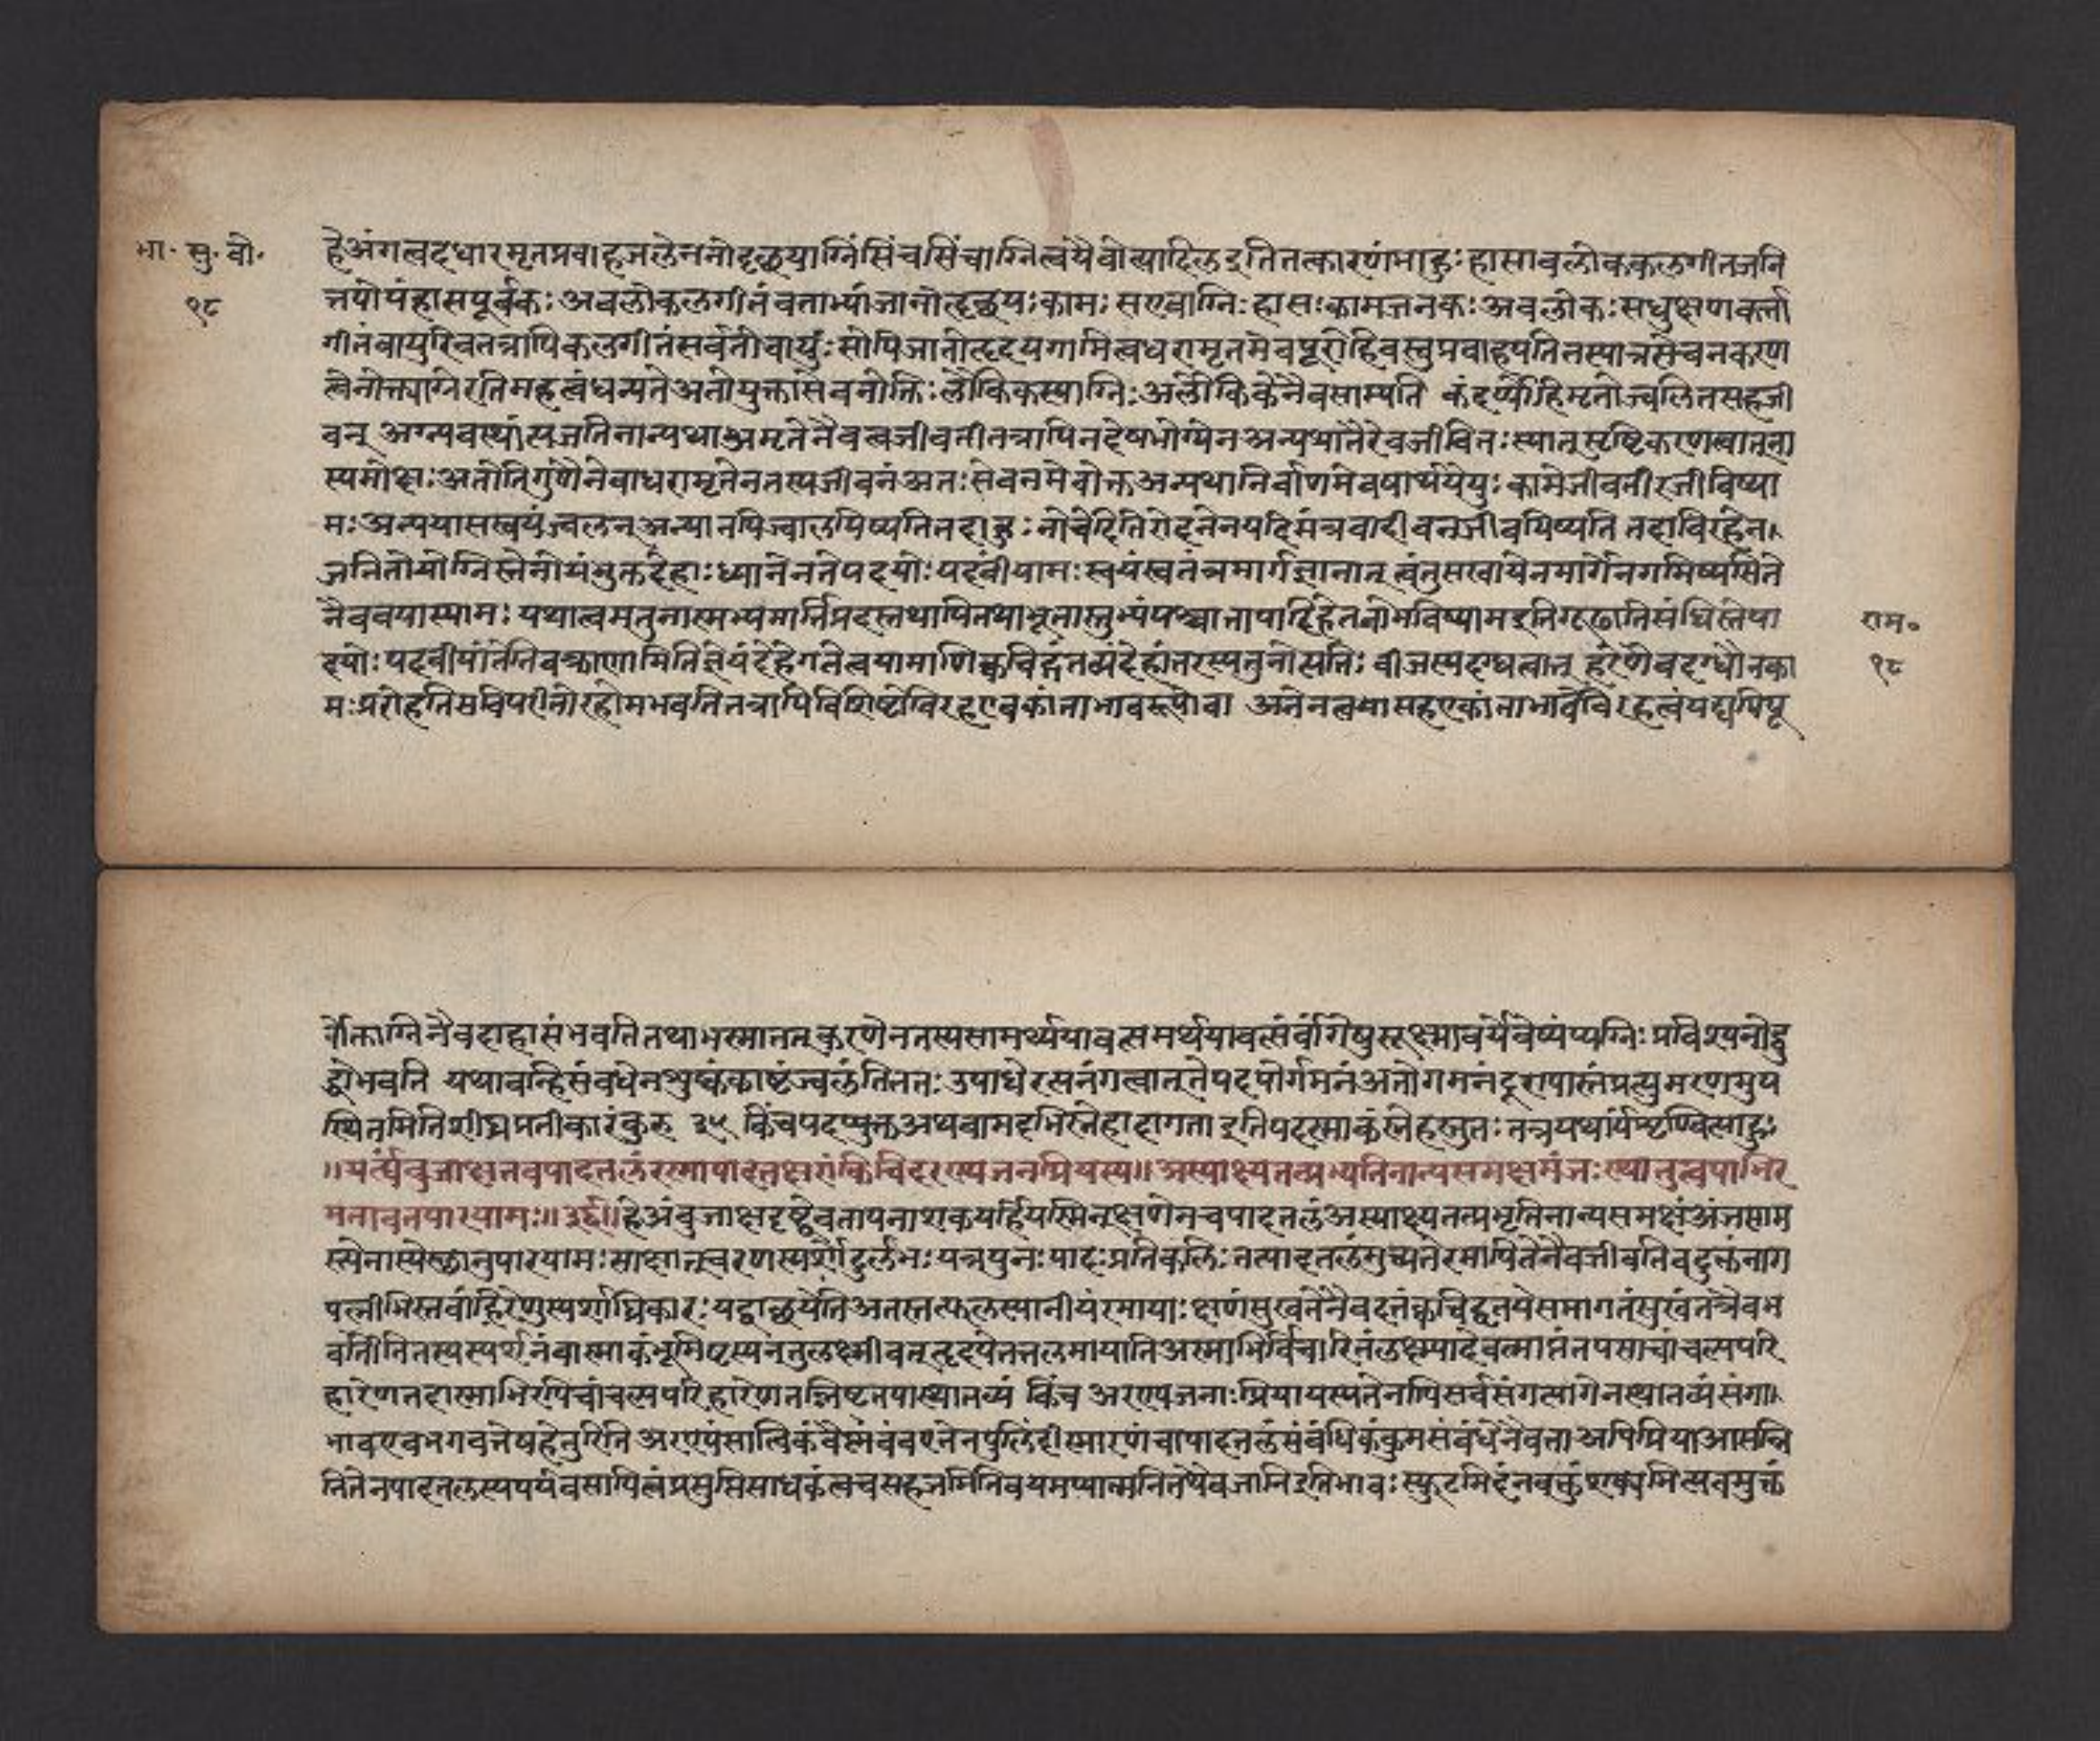 भा. सु. बो.
१८
हेअंगत्वदधारमृतप्रवाहजलेननोहृछयाग्निंसिंचसिंचाग्नित्वंयैवोत्पादितइतितत्कारणंमाहुः हासावलोककलगीतजनि
त्तपोयंहासपूर्वकः अवलोकलगीतंवताभ्यांजातोहृछयः कामः सएवाग्निः हासः कामजनकः अवलोकः सधुक्षणकर्त्ता
गीतंवायुरिवतत्रापिकलगीतंसर्वतोवायुः सोपिजातोहृदयगामित्वधरामृतमेवपूरोहिवस्तुप्रवाहपतितस्यान्नसेचनकरण
त्वेनोक्त्याग्नेरतिमहत्वंधन्यतेअतोयुक्तासेवनोक्तिः लौकिकस्याग्निः अलौकिकेनैवसाम्यति कंदर्प्पोहिमृतोज्वलितसहजी
वन् अग्न्यवस्थांत्यजतिनान्यथाअमृतेनैवत्वजीवतीतत्रापिनदेवभोग्येन अन्यथातैरेवजीवितः स्यात्नुसृष्टिकरणत्वात्तना
स्यमोक्षः अतोतिगुणेनेवाधरामृतेनतस्यजीवनंअतः सेवनमेवोक्तअन्यथानिर्वाणमेवपार्थयेयुः कामेजीवतीरजीविष्या
मः अन्यथासस्वयंज्वलन्अन्यानपिज्वालयिष्यतितदाहु नोचेदितिरोदनेनयदिमंत्रवादीवनजीवयिष्यति तदाविरहेण
जनितोयोग्निस्तेनोयंभुक्तदेहाः ध्यानेनतेपदयोः पदवींयामः स्वयंस्वतंत्रमार्गज्ञानात् त्वंतुसखायेनमार्गेनगमिष्यसितेने
नैववयास्यामः यथात्वमनुनास्मभ्यमार्त्तिप्रदस्तथापितथाभूतास्तुभ्यंपश्चात्तापादिहेतवोभविष्यामइतिगूढातिसंधिस्तेपा
दयोः पदवीयांतेतिवक्राणामितिज्ञेयंदेहेगतेत्वयामाणिक्वचिद्गंतव्यंदेहांतरस्यतुनोत्पत्तिः बीजस्यदग्धत्वात् हरेणैवदग्धोनका
मः प्ररोहतिसविपरीतोरहोमभवतितत्रापिविशिष्टोविरहएवकांताभावरूपोवा अनेनत्वयासहएकांताभावेविरहत्वंयद्यपिपू
राम०
१८
र्वोक्ताग्निनैवदाहासंभवतितथाभस्मात्तत्करणेनतस्यसामर्थ्ययावत्समर्थयावत्सर्वांगेषुसूक्ष्मावयवेष्वप्यग्निः प्रविश्यनोद्बु
द्धोभवति यथावन्हिसंवधेनशुष्कंकाष्टंज्वलंतिततः उपाधेरत्यनंगत्वात्नतेपदयोर्गमनंअतोगमनंदूरापास्तंप्रत्युमरणमुप
स्थितमितिशीघ्रप्रतीकारंकुरु ३५ किंचयदप्युक्तअथवामदभिस्नेहादागताइतिपदस्माकंस्नेहस्तुतः तत्रयथार्यंशृण्वित्याहुः
॥यर्त्त्यंवुजाक्षतवपादतलंरमायादत्तक्षणंक्वचिदरण्यजनप्रियस्य॥ अस्पाक्ष्मतत्प्रभ्यतिनान्यसमक्षमंजः स्थातुत्वयाभिर
मतावतपारयामः॥३६॥हेअंवुजाक्षदृष्ट्यैवतापनाशकयर्हियस्मिन्क्षणेतचपादतलंअस्पाक्ष्मतत्प्रभृतिनान्यसमक्षंअंजसाम
स्त्येनास्येस्थातुपारयामः साक्षात्चरणस्पर्शोदुर्लभः यत्रपुनः पादः प्रतिकलिः तत्पादतलंमुच्यतेरमापितेनैवजीवतिवदुक्तंनाग
पत्नीभिस्तवांह्रिरेणुस्पर्शाधिकारः यद्वांछयेतिअतस्तत्फलस्थानीयंरमायाः क्षणंसुखतेनैवदत्तंक्वचिद्धृतयेसमागतंसुखंतत्रैवभ
वतीतितस्यस्पर्शनंवास्माकंभूमिपृस्यनंतुलक्ष्मीवत्हृदयेतत्तलमायातिअस्माभिर्विचारितंलक्ष्म्यादेवत्मात्तंतपसाचांचल्यपरि
हारेणतदास्माभिरपिचांचल्यपरिहारेणतन्निष्टतयास्थातव्यं किंच अरण्यजनाः प्रियायस्यतेनापिसर्वसंगत्यागेनस्थातव्यंसंगा
भावएवभगवत्तेषहेतुरिति अरण्यंसात्विकंवैष्मवंवरत्तेनपुलिंदीस्मारणंवापादतलंसंबंधिकंकुमसंबंधेनैवता अपिप्रियाआसन्नि
तितेनपादतलस्यपर्यवसापित्वंप्रसुप्तिसाधकंत्वचसहजमितिवयमप्यात्मनितथैवजानिइतिभावः स्फुटमिदंनवक्तुंशक्यमित्येवमुक्तं